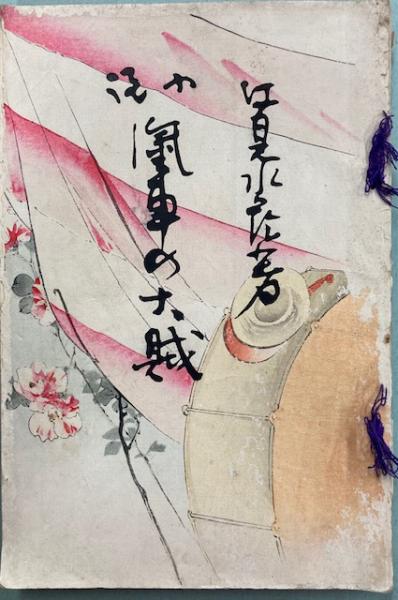 江見水蔭著
小説
汽車の大賊